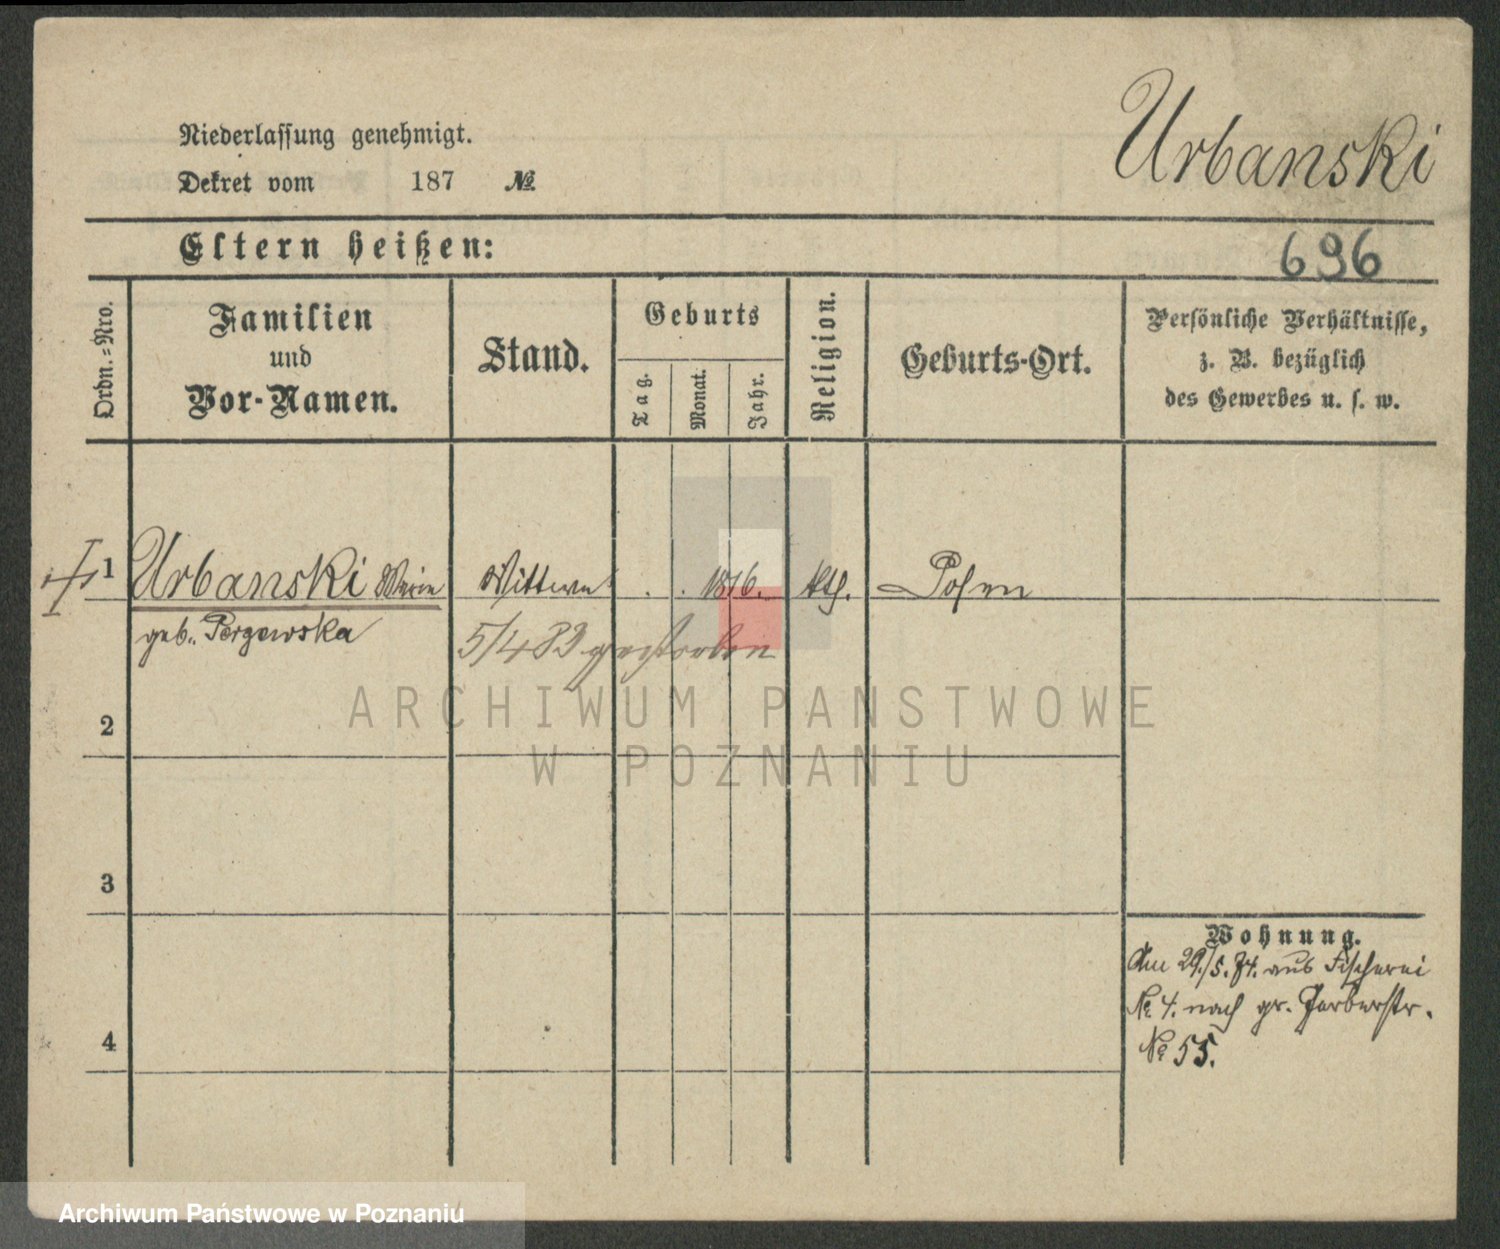 Urbanski
Niederlassung genehmigt.
Dekret vom 187 №
Eltern heißen:
696
Ordn.=Nro.
Familien
und
Vor-Namen.
Stand.
Geburts
Tag.
Monat.
Jahr.
Religion.
Geburts-Ort.
Persönliche Verhältnisse,
z. B. bezüglich
des Gewerbes u. s. w.
1 Urbanski Marie Wittwe . . 1816. kth. Posen
geb. Pergewska 5/4 82 gestorben
2
3
4
Wohnung.
Am 29./5. 74. aus Fischerei
№ 4. nach gr. Gerberstr.
№ 55.
ARCHIWUM PANSTWOWE
W POZNANIU
Archiwum Państwowe w Poznaniu